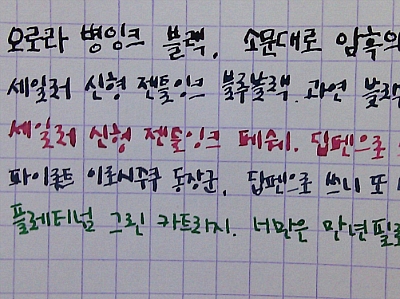 오로라 병잉크 블랙. 소문대로 암흑의
세일러 신형 젠틀잉크 블루블랙. 과연 블랙
세일러 신형 젠틀잉크 페쉐. 딥펜으로
파이로트 이로시주쿠 동장군. 딥펜으로 쓰니 또
플레티넘 그린 카트리지. 너만은 만년필로